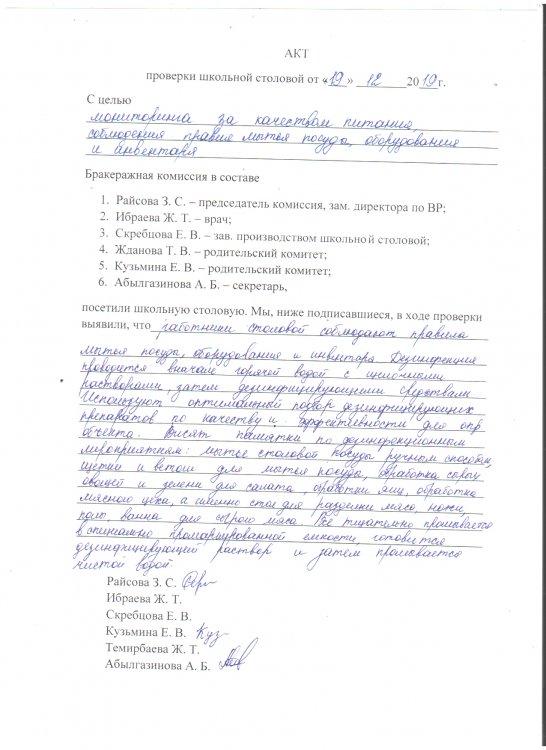 АКТ
проверки школьной столовой от «19» 12 2019г.
С целью
мониторинга за качеством питания,
соблюдения правил мытья посуды, оборудования
и анвентаря
Бракеражная комиссия в составе
1. Райсова З. С. – председатель комиссия, зам. директора по ВР;
2. Ибраева Ж. Т. – врач;
3. Скребцова Е. В. – зав. производством школьной столовой;
4. Жданова Т. В. – родительский комитет;
5. Кузьмина Е. В. – родительский комитет;
6. Абылгазинова А. Б. – секретарь,
посетили школьную столовую. Мы, ниже подписавшиеся, в ходе проверки
выявили, что работники столовой соблюдают правила
мытья посуды, оборудования и инвитора Дезинфекция
проводится вначале горячей водой с щелочными
растворами, затем дезинфицирующими средствами
Используют оптимальный подбор дезинфицирующих
препаратов по качеству и эффективности для опр
объекта. Висят памятки по дезинфекционным
мероприятиям: мытье столовой посуды ручным способом,
щетки и ветоши для мытья посуды, обработка сырых
овощей и зелени для салата, обработки яиц, обработка
мясного цеха, а именно стол для разделки мяса, ножи,
полы, ванна для сырого мяса. Все тщательно промывается
в специально промаркированной емкости, готовится
дезинфицирующий раствор и затем промывается
чистой водой
Райсова З. С.
Ибраева Ж. Т.
Скребцова Е. В.
Кузьмина Е. В. Куз
Темирбаева Ж. Т.
Абылгазинова А. Б.